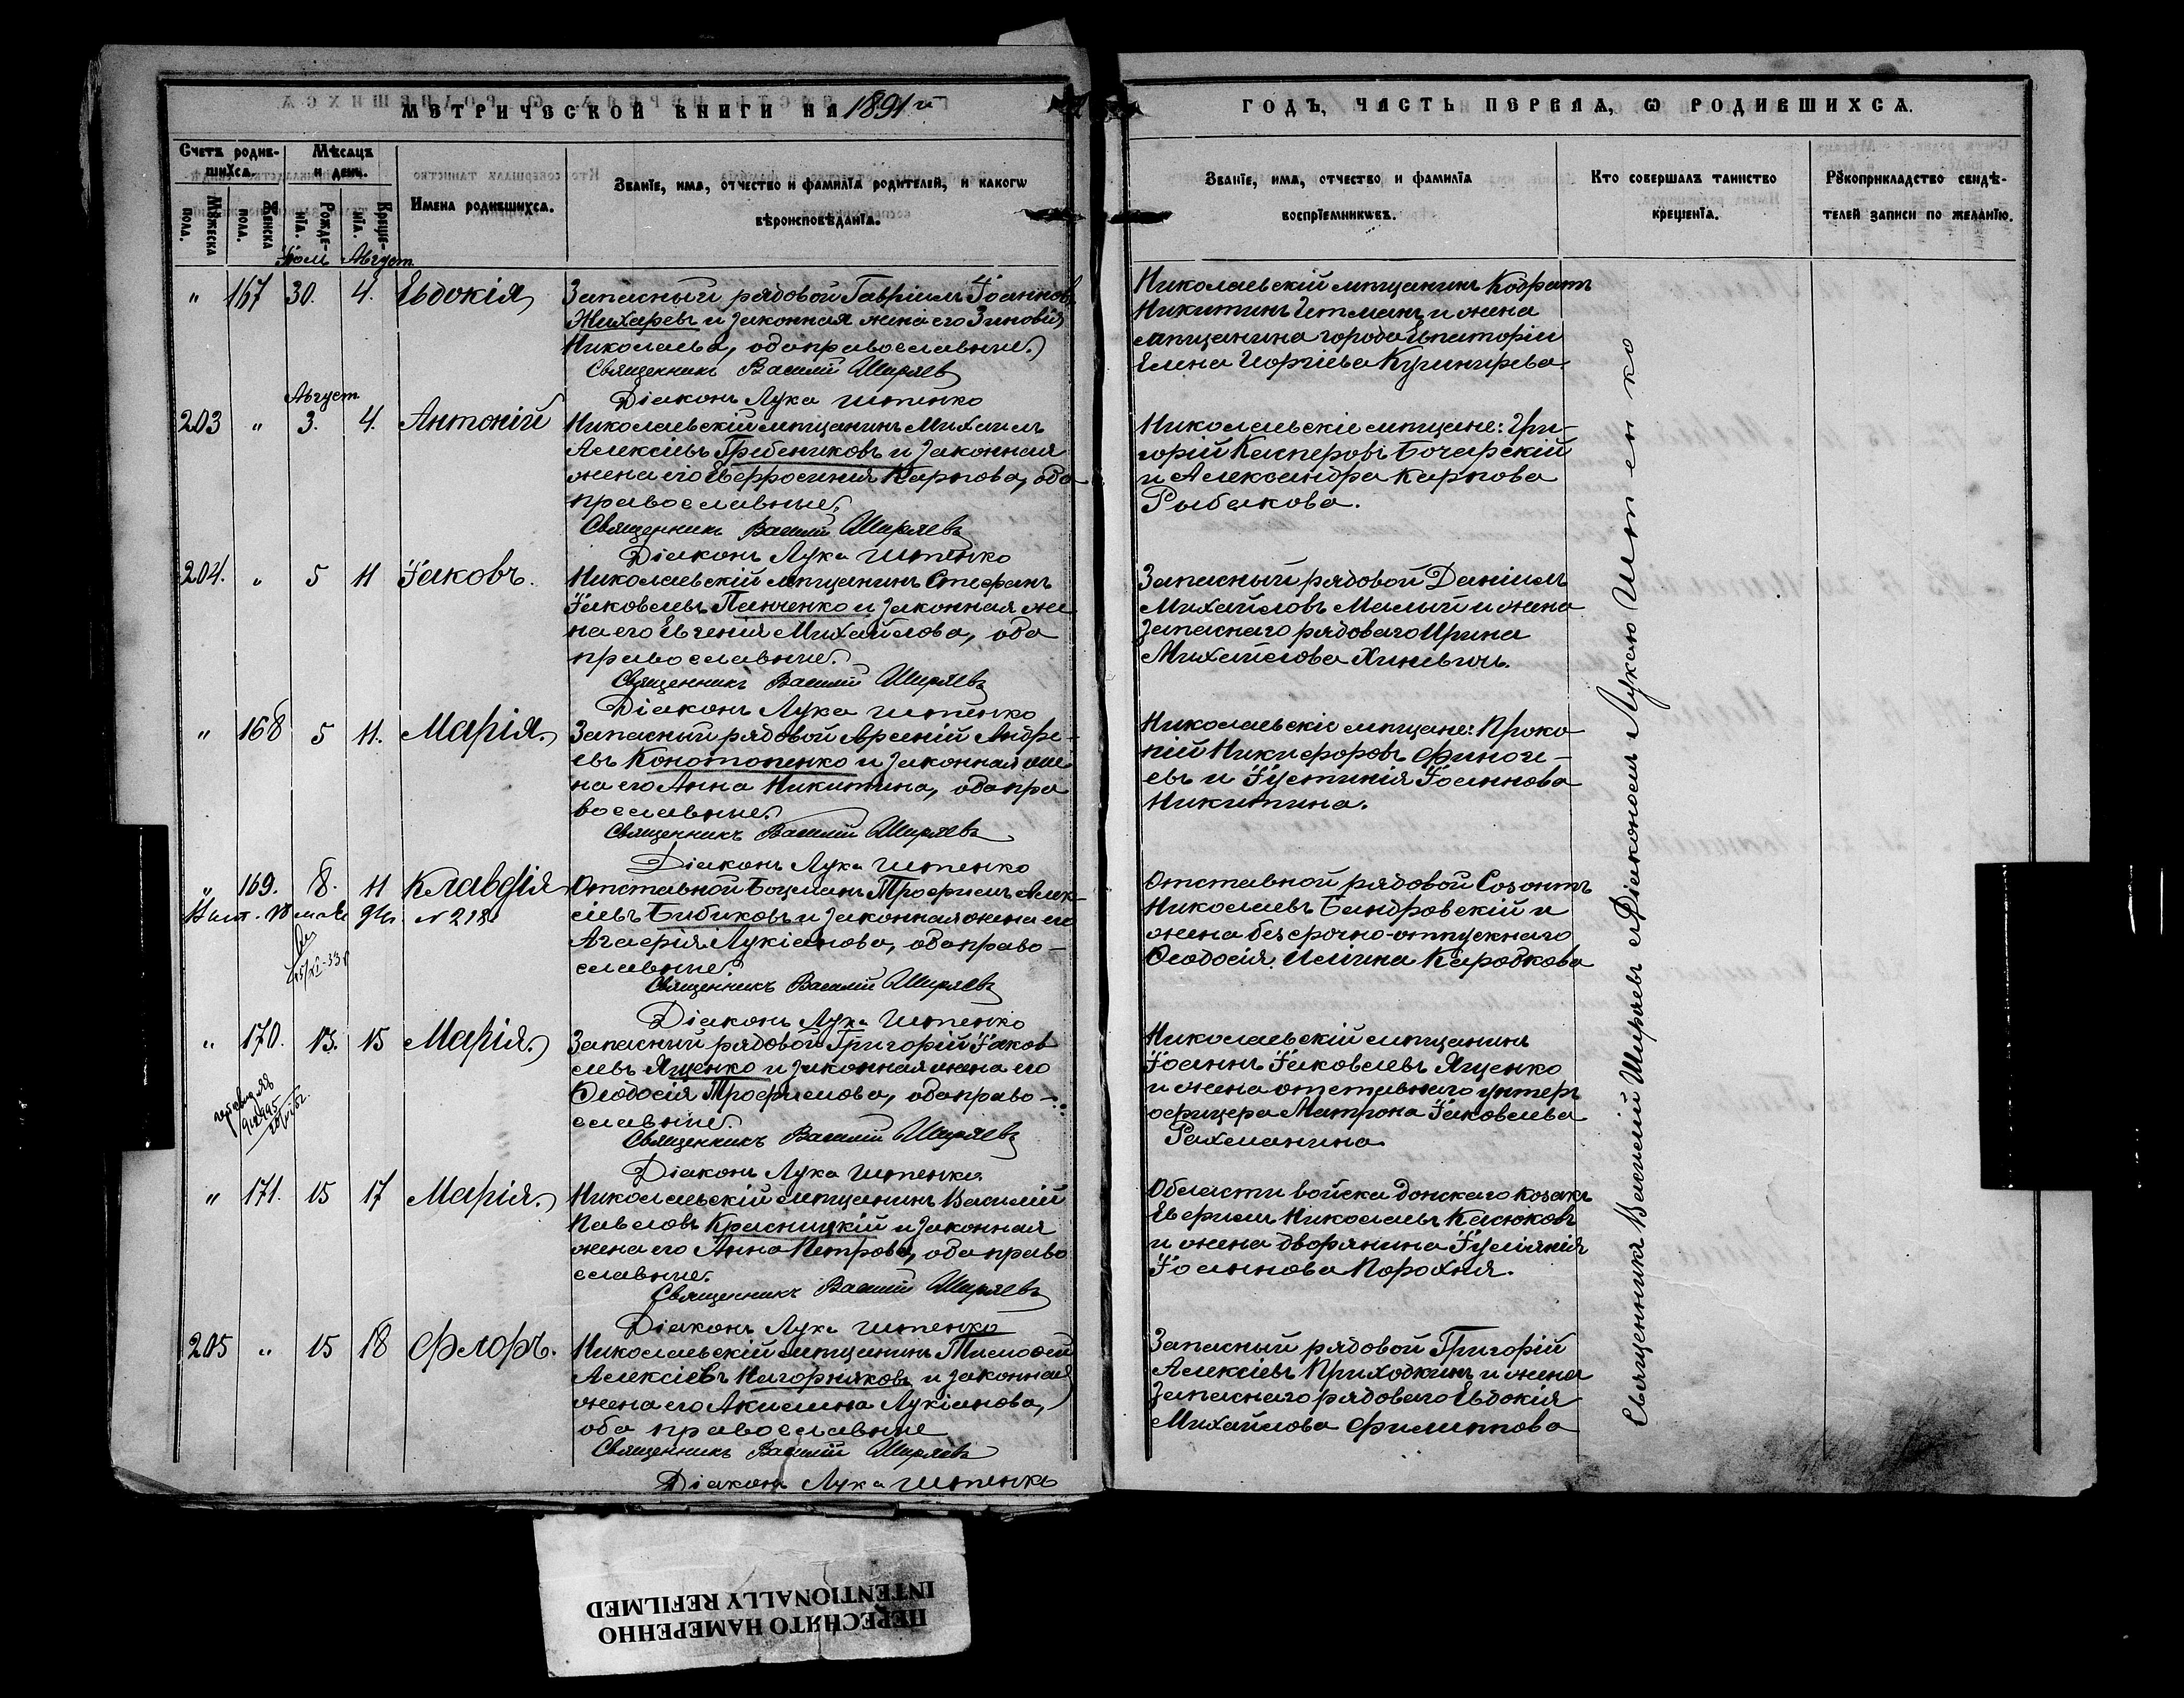 МЕТРИЧЕСКОЙ КНИГИ НА 1891 й
Счетъ родив-
шихся.
Мѣсяцъ
и день.
Имена родившихся.
Званіе, имя, отчество и фамилія родителей, и какого
вѣроисповѣданія.
Мужеска
пола.
Женска
пола.
Рожде-
нія.
Креще-
нія.
Іюль Август.
" 167 30. 4. Евдокія
Запасный рядовой Гавріилъ Іоанновъ
Жихаревъ и законная жена его Зиновія
Николаева, оба православные.
Священникъ Василій Ширяевъ
Діаконъ Лука Иптенко
Август.
203 " 3. 4. Антоній
Николаевскій мѣщанинъ Михаилъ
Алексіевъ Гребениковъ и законная
жена его Евфросинія Карпова, оба
православные.
Священникъ Василій Ширяевъ
Діаконъ Лука Иптенко
204. " 5 11 Іаковъ.
Николаевскій мѣщанинъ Стефанъ
Іаковлевъ Панченко и законная же
на его Евгенія Михайлова, оба
православные.
Священникъ Василій Ширяевъ
Діаконъ Лука Иптенко
" 168 5 11. Марія.
Запасный рядовой Арсеній Андре-
евъ Конотопенко и законная же
на его Анна Никитина, оба пра
вославные.
Священникъ Василій Ширяевъ
Діаконъ Лука Иптенко
" 169. 8. 11 Клавдія
Отставной Боцманъ Трофимъ Алек-
сіевъ Бибиковъ и законная жена его
Агафія Лукіанова, оба право-
славные.
Священникъ Василій Ширяевъ
Діаконъ Лука Иптенко
N 218
" 170. 13. 15 Марія.
Запасный рядовой Григорій Іаков
левъ Ященко и законная жена его
Ѳеодосія Трофимова, оба право-
славные.
Священникъ Василій Ширяевъ
Діаконъ Лука Иптенко
" 171. 15 17 Марія.
Николаевскій мѣщанинъ Василій
Павловъ Красницкій и законная
жена его Анна Петрова, оба право
славные.
Священникъ Василій Ширяевъ
Діаконъ Лука Иптенко
205 " 15 18 Флоръ.
Николаевскій мѣщанинъ Тимоѳей
Алексіевъ Нагорняковъ и законная
жена его Акилина Лукіанова,
оба православные
Священникъ Василій Ширяевъ
Діаконъ Лука Иптенко
ГОДЪ, ЧАСТЬ ПЕРВАЯ, Ѡ РОДИВШИХСЯ.
Званіе, имя, отчество и фамилія
воспріемниковъ.
Кто совершалъ таинство
крещенія.
Рукоприкладство свидѣ-
телей записи по желанію.
Николаевскій мѣщанинъ Кодратъ
Никитинъ Гетманъ и жена
мѣщанина города Евпаторіи
Елена Георгіева
Николаевскіе мѣщане: Гри-
горій Касперовъ Бочарскій
и Александра Карпова
Рыбакова.
Запасный рядовой Даніилъ
Михайловъ Малый и жена
запаснаго рядоваго Ирина
Михайлова
Николаевскіе мѣщане: Проко
пій Никифоровъ Финоге-
евъ и Іустинія Іоаннова
Никитина.
Отставной рядовой Созонтъ
Николаевъ Бандровскій и
жена безсрочно-отпускнаго
Ѳеодосія Ильина Коробкова
Николаевскій мѣщанинъ
Іоаннъ Іаковлевъ Ященко
и жена отставнаго унтеръ
офицера Матрона Іаковлева
Рахманина
Области войска донскаго козакъ
Ефримъ Николаевъ Касюковъ
и жена дворянина Іуліянія
Іоаннова Порохня.
Запасный рядовой Григорій
Алексіевъ Приходкинъ и жена
запаснаго рядоваго Евдокія
Михайлова Филиппова
Священникъ Василій Ширяевъ съ Діакономъ Лукою Иптенко
ПЕРЕСНЯТО НАМЕРЕННО
INTENTIONALLY REFILMED